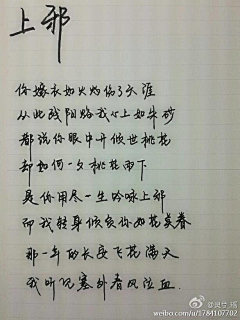 上邪
你嫁衣如火灼伤了天涯
从此残阳烙我心上如朱砂
都说你眼中开倾世桃花
却如何一夕桃花雨下
是你用尽一生吟咏上邪
而我转身倾负你如花美眷
那一年的长安飞花满天
我听见塞外春风泣血.
weibo.com/u/1784107702